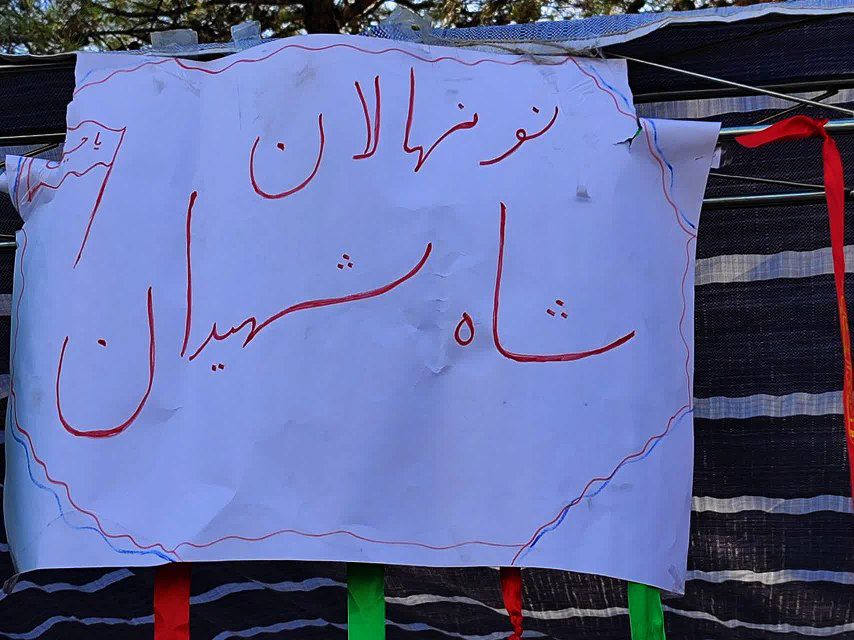 نونهالان
شاه شهیدان
یا حسین